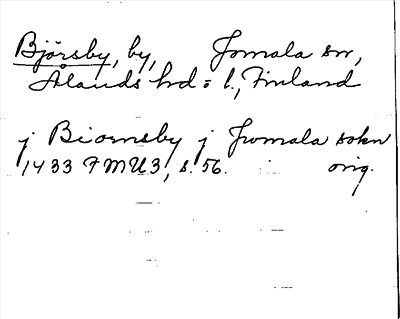 Björsby, by, Jomala sn,
Ålands hd o l., Finland
j Biornsby j Jwomala sokn
1433 FMU3, s. 56. orig.